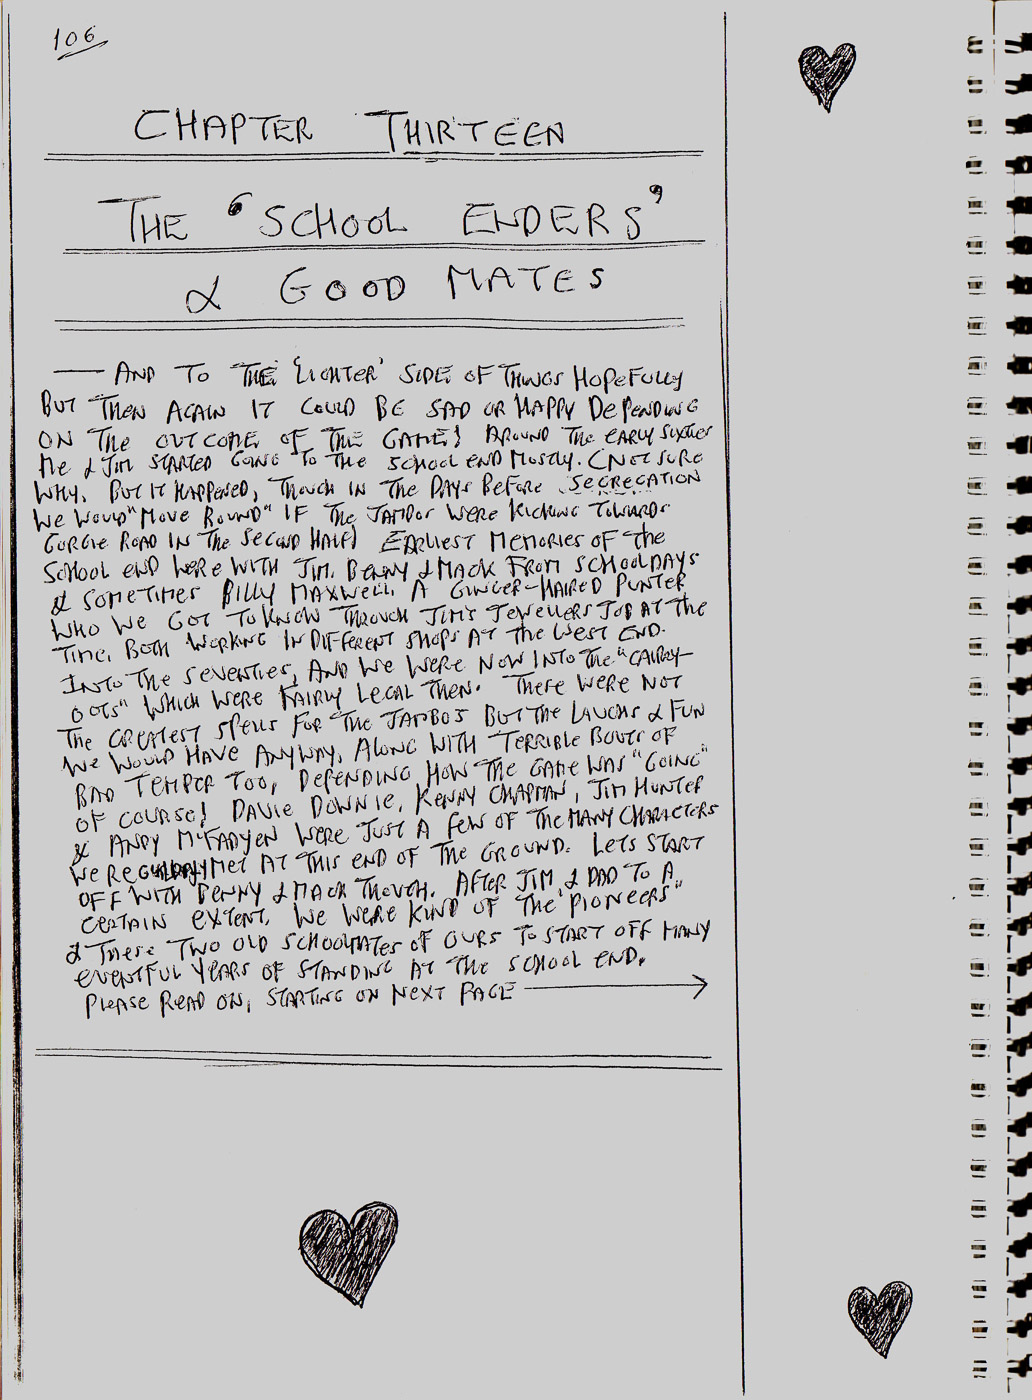 106
CHAPTER THIRTEEN
THE 'SCHOOL ENDERS'
& GOOD MATES
— AND TO THE 'LIGHTER' SIDE OF THINGS HOPEFULLY
BUT THEN AGAIN IT COULD BE SAD OR HAPPY DEPENDING
ON THE OUTCOME OF THE GAME! AROUND THE EARLY SIXTIES
ME & JIM STARTED GOING TO THE SCHOOL END MOSTLY. (NOT SURE
WHY, BUT IT HAPPENED, THOUGH IN THE DAYS BEFORE SEGREGATION
WE WOULD "MOVE ROUND" IF THE JAMBOS WERE KICKING TOWARDS
GORGIE ROAD IN THE SECOND HALF) EARLIEST MEMORIES OF THE
SCHOOL END WERE WITH JIM, BENNY & MACK FROM SCHOOLDAYS
& SOMETIMES BILLY MAXWELL, A GINGER-HAIRED PUNTER
WHO WE GOT TO KNOW THROUGH JIM'S JEWELLERS JOB AT THE
TIME, BOTH WORKING IN DIFFERENT SHOPS AT THE WEST END.
INTO THE SEVENTIES, AND WE WERE NOW INTO THE "CAIRRY-
OOTS" WHICH WERE FAIRLY LEGAL THEN. THERE WERE NOT
THE GREATEST SPELLS FOR THE JAMBOS BUT THE LAUGHS & FUN
WE WOULD HAVE ANYWAY, ALONG WITH TERRIBLE BOUTS OF
BAD TEMPER TOO, DEPENDING HOW THE GAME WAS "GOING"
OF COURSE! DAVIE DOWNIE, KENNY CHAPMAN, JIM HUNTER
& ANDY McFADYEN WERE JUST A FEW OF THE MANY CHARACTERS
WE REGULARLY MET AT THIS END OF THE GROUND. LETS START
OFF WITH BENNY & MACK THOUGH. AFTER JIM & DAD TO A
CERTAIN EXTENT, WE WERE KIND OF THE "PIONEERS"
& THESE TWO OLD SCHOOLMATES OF OURS TO START OFF MANY
EVENTFUL YEARS OF STANDING AT THE SCHOOL END.
PLEASE READ ON, STARTING ON NEXT PAGE →